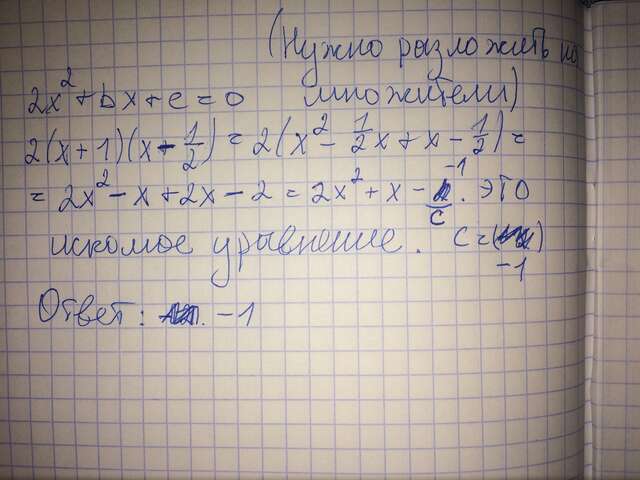 (Нужно разложить на
множители)
2x² + bx + c = 0
2(x + 1)(x - 1/2) = 2(x² - 1/2x + x - 1/2) =
= 2x² - x + 2x - 2 = 2x² + x - 1. Это
c
искомое уравнение. c = -1
Ответ: -1